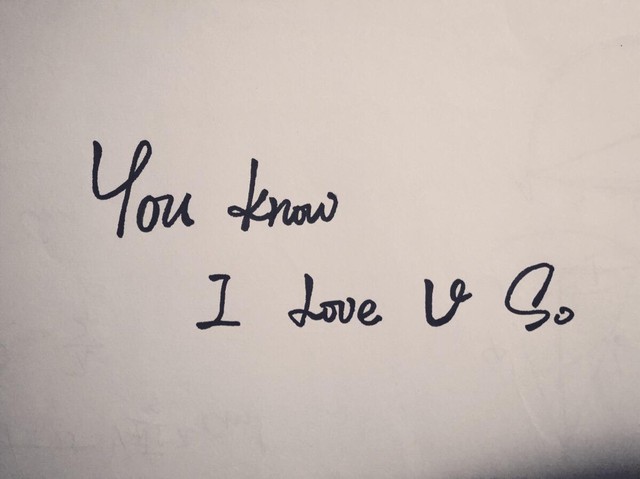 You know
I Love U So